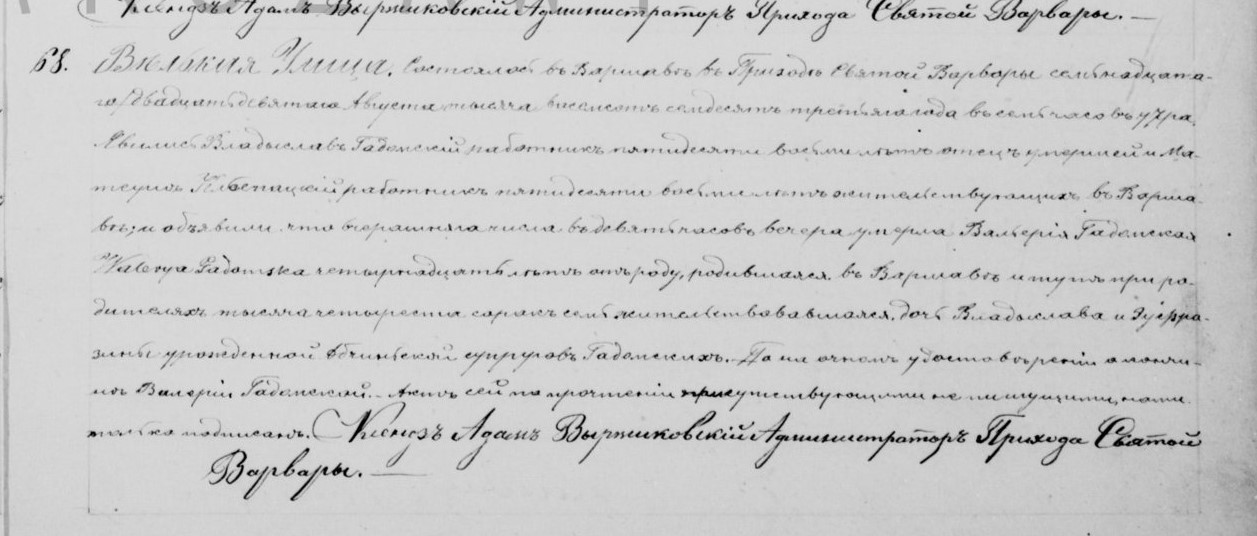 Ксендзъ Адамъ Выржиковскій Администраторъ Прихода Святой Варвары. —
68. Велькия Улица. Состоялось въ Варшавѣ въ Приходѣ Святой Варвары семьнадцата-
го/двадцать девятаго Августа тысяча восемсотъ семдесятъ третьяго года въ семь часовъ утра.
Явились Владыславъ Гадомскій работникъ пятидесяти восьми лѣтъ отецъ умершей и Ма-
теушъ работникъ пятидесяти восьми лѣтъ жительствующихъ въ Варша-
вѣ; и объявили что вчерашняго числа въ девять часовъ вечера умерла Валерія Гадомская
Walerya Gadomska четырнадцать лѣтъ отъ роду, родившаяся въ Варшавѣ и тутъ при ро-
дителяхъ тысяча четыреста сорокъ семь жительствовавшаяся, дочь Владыслава и Эуфро-
зины урожденной супруговъ Гадомскихъ. По на очномъ удостовѣреніи о кончи-
нѣ Валеріи Гадомской. Актъ сей по прочтеніи присутствующими не пишущими, нами
только подписанъ. Ксендзъ Адамъ Выржиковскій Администраторъ Прихода Святой
Варвары. —